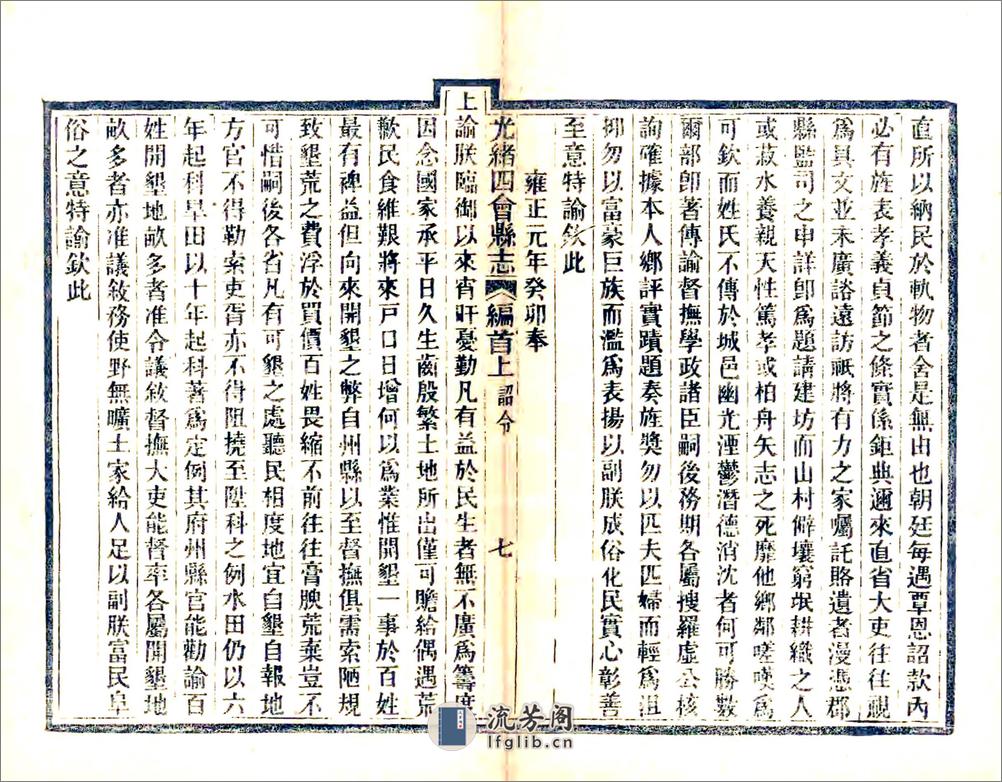 直所以納民於軌物者舍是無由也朝廷每遇覃恩詔款內
必有旌表孝義貞節之條實係鉅典邇來直省大吏往往視
爲具文並未廣諮遠訪祇將有力之家囑託賂遺者漫憑郡
縣監司之申詳卽爲題請建坊而山村僻壤窮氓耕織之人
或菽水養親天性篤孝或柏舟矢志之死靡他鄉鄰嗟嘆爲
可欽而姓氏不傳於城邑幽光湮鬱潛德消沈者何可勝數
爾部卽著傳諭督撫學政諸臣嗣後務期各屬搜羅虛公核
詢確據本人鄉評實蹟題奏旌獎勿以匹夫匹婦而輕爲沮
抑勿以富豪巨族而濫爲表揚以副朕成俗化民實心彰善
至意特諭欽此
雍正元年癸卯奉
光緒四會縣志 編首上 詔令 七
上諭朕臨御以來宵旰憂勤凡有益於民生者無不廣爲籌度
因念國家承平日久生齒殷繁土地所出僅可贍給偶遇荒
歉民食維艱將來戶口日增何以爲業惟開墾一事於百姓
最有裨益但向來開墾之弊自州縣以至督撫俱需索陋規
致墾荒之費浮於買價百姓畏縮不前往往膏腴荒棄豈不
可惜嗣後各省凡有可墾之處聽民相度地宜自墾自報地
方官不得勒索吏胥亦不得阻撓至陞科之例水田仍以六
年起科旱田以十年起科著爲定例其府州縣官能勸諭百
姓開墾地畝多者准令議敘督撫大吏能督率各屬開墾地
畝多者亦准議敘務使野無曠土家給人足以副朕富民阜
俗之意特諭欽此
流芳阁
lfglib.cn